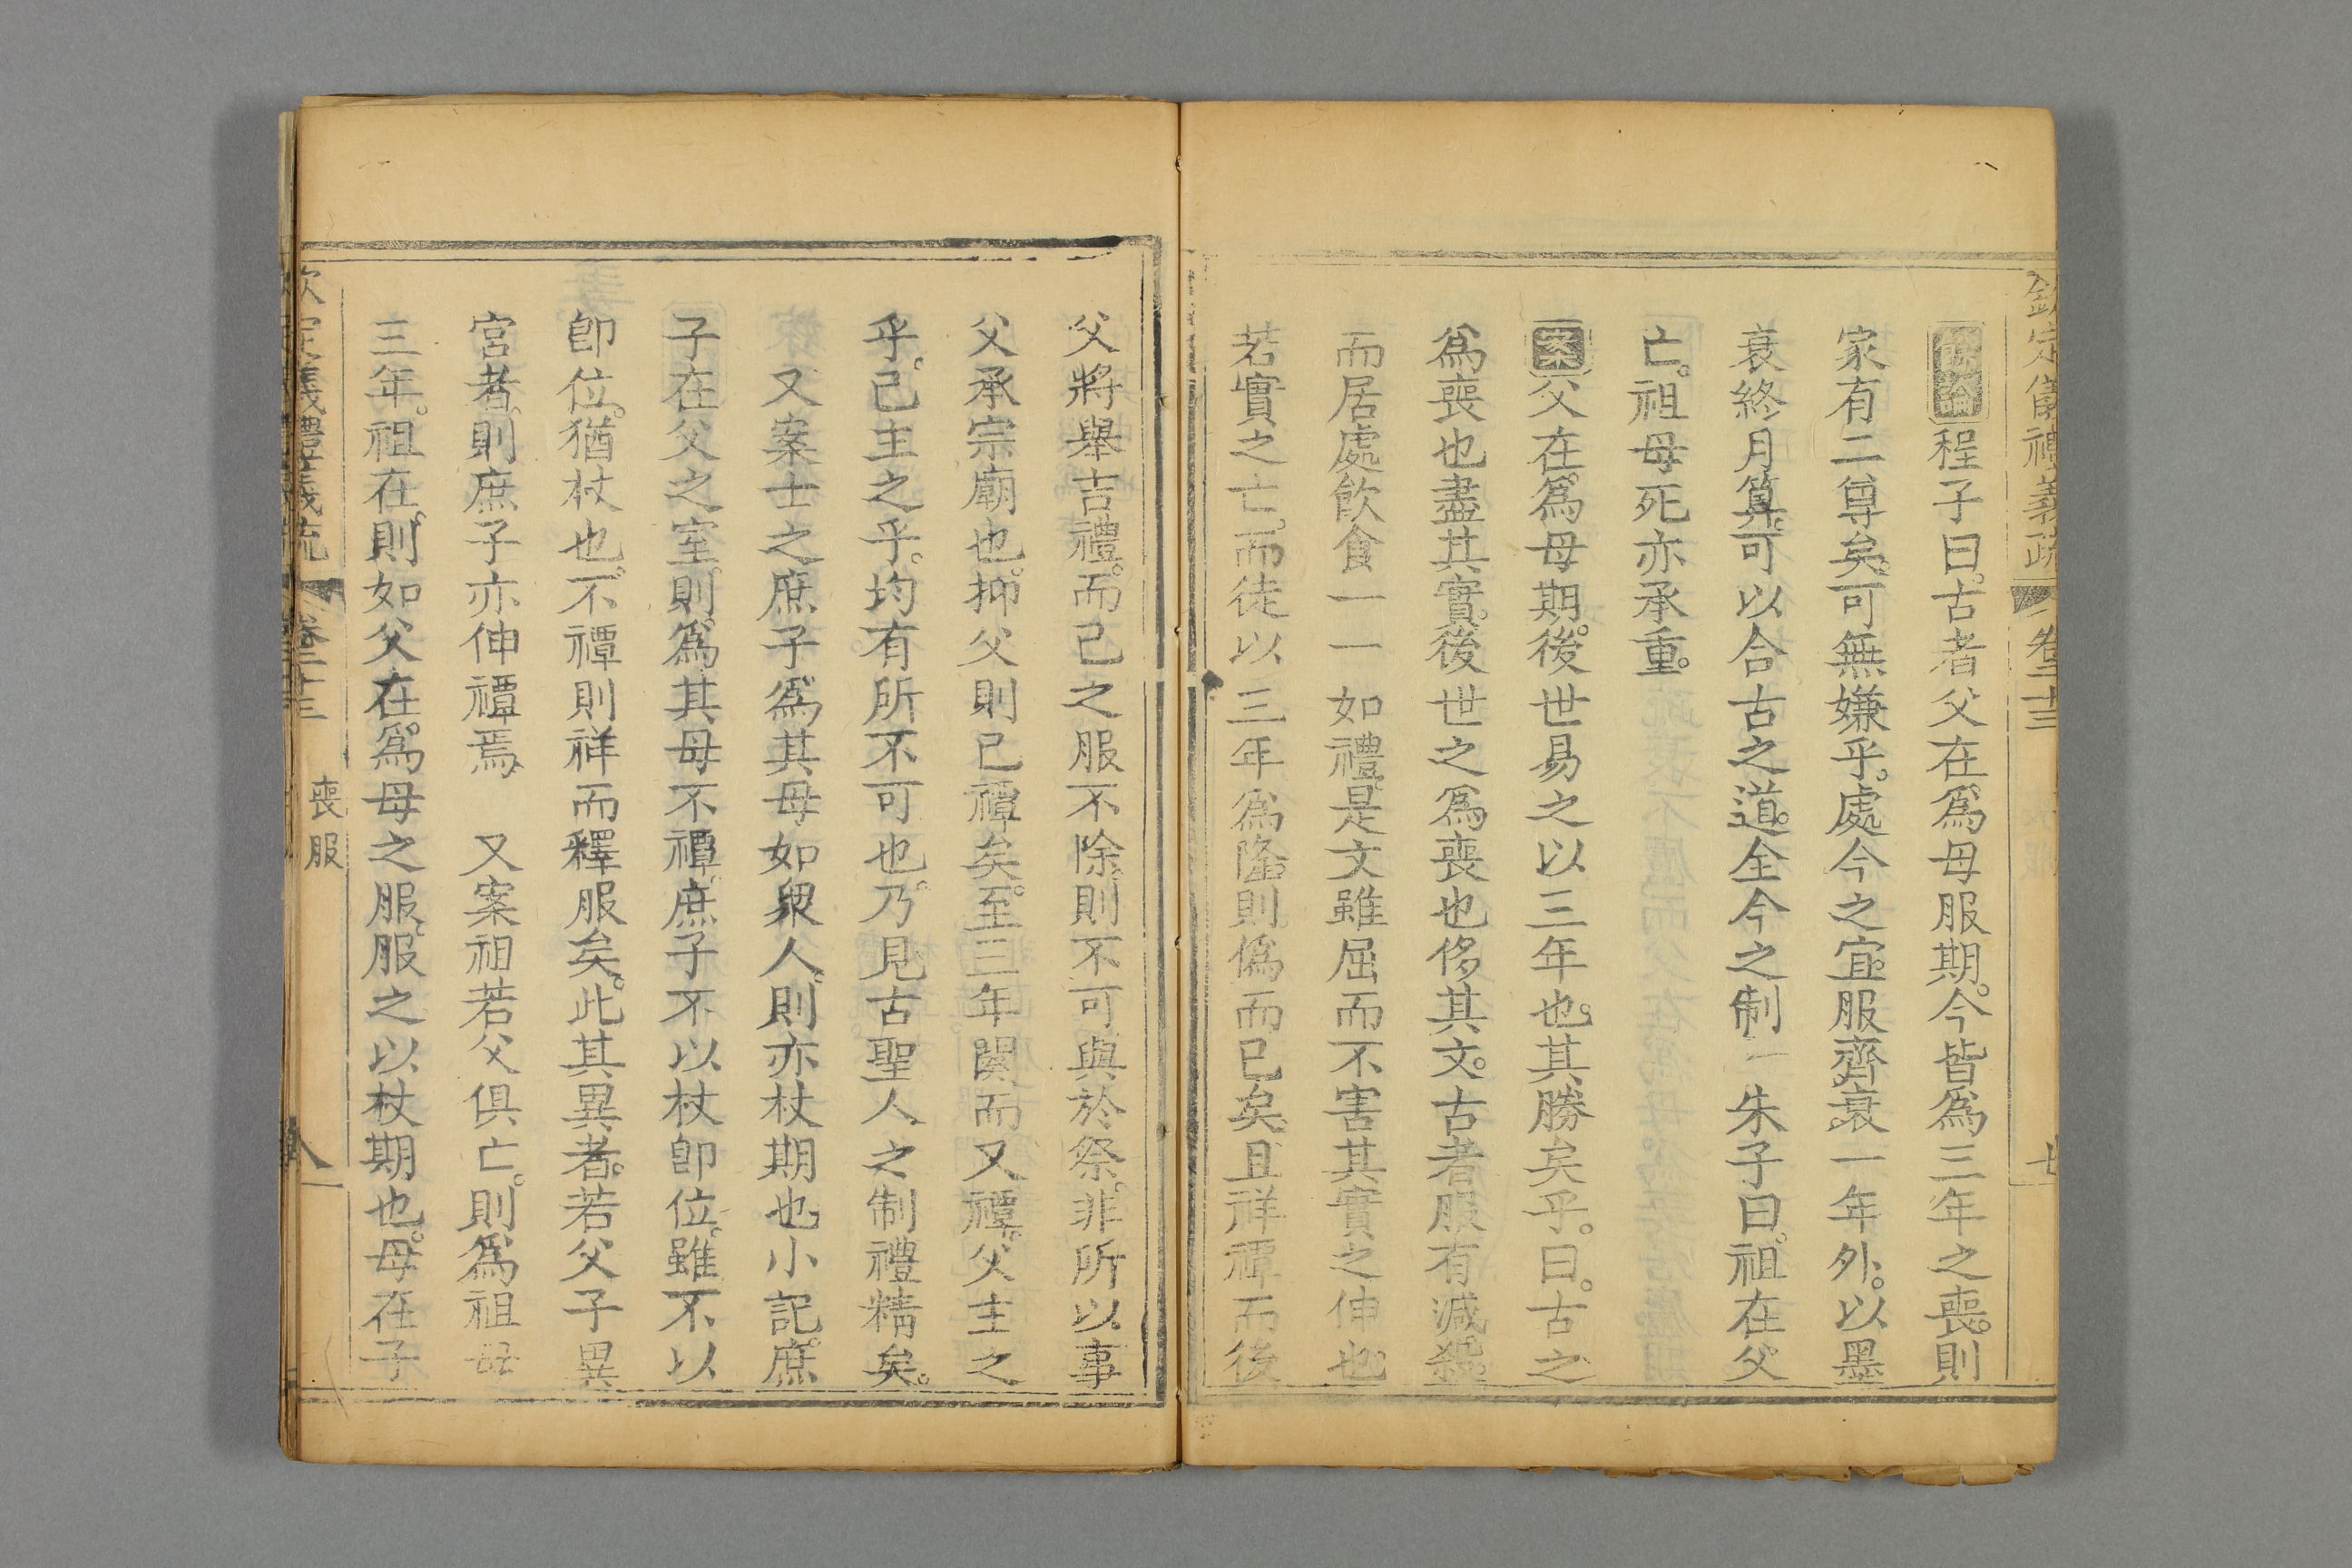 欽定儀禮義疏 卷二十三 七
餘論程子曰。古者父在爲母服期。今皆爲三年之喪。則
家有二尊矣。可無嫌乎。處今之宜。服齊衰一年外。以墨
衰終月算。可以合古之道。全今之制 朱子曰。祖在父
亡。祖母死亦承重。
案父在。爲母期。後世易之以三年也。其勝矣乎。曰。古之
爲喪也盡其實。後世之爲喪也侈其文。古者服有減殺。
而居處飲食一一如禮。是文雖屈而不害其實之伸也。
若實之亡。而徒以三年爲隆。則僞而已矣。且祥禫而後
父將舉吉禮。而已之服不除。則不可與於祭。非所以事
父承宗廟也。抑父則已禫矣。至三年闋而又禫。父主之
乎。己主之乎。均有所不可也。乃見古聖人之制禮精矣。
又案士之庶子爲其母如衆人。則亦杖期也小記。庶
子在父之室。則爲其母不禫。庶子不以杖卽位。雖不以
卽位。猶杖也。不禫則祥而釋服矣。此其異者。若父子異
宮者。則庶子亦伸禫焉 又案祖若父俱亡。則爲祖母
三年。祖在。則如父在。爲母之服。服之以杖期也。母在子
欽定儀禮義疏 卷二十三 喪服 八